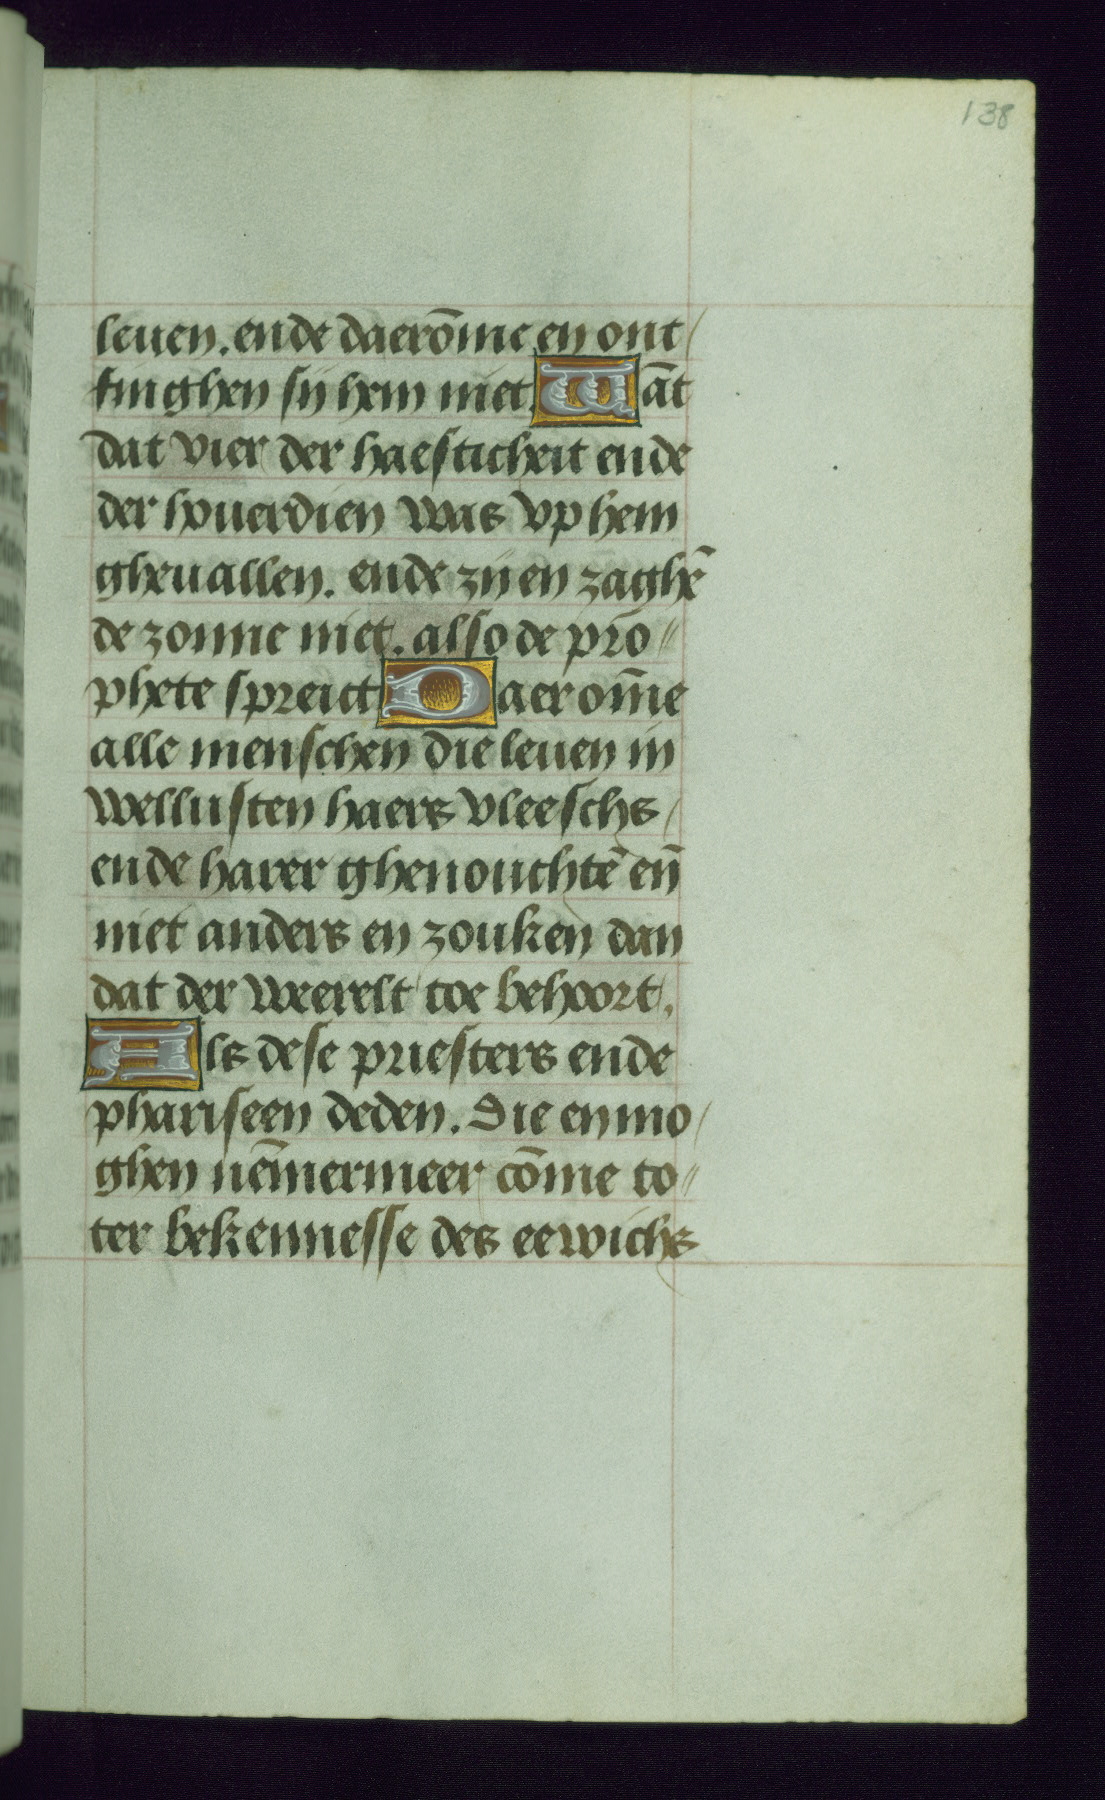 138
leuen. ende daerōme en ont/
finghen sij hem niet. Wāt
dat vier der haesticheit ende
der houerdien was vp hem
gheuallen. ende zij en zaghē
de zonne niet. also de pro//
phete spreict Daer om̄e
alle menschen die leuen in
wellusten haers vleeschs/
ende harer ghenouchtē en̄
niet anders en zouken dan
dat der weerelt toe behoort.
Als dese priesters ende
phariseen deden. Die en mo/
ghen nēmermeer cōme to//
ter bekennesse des eewichs